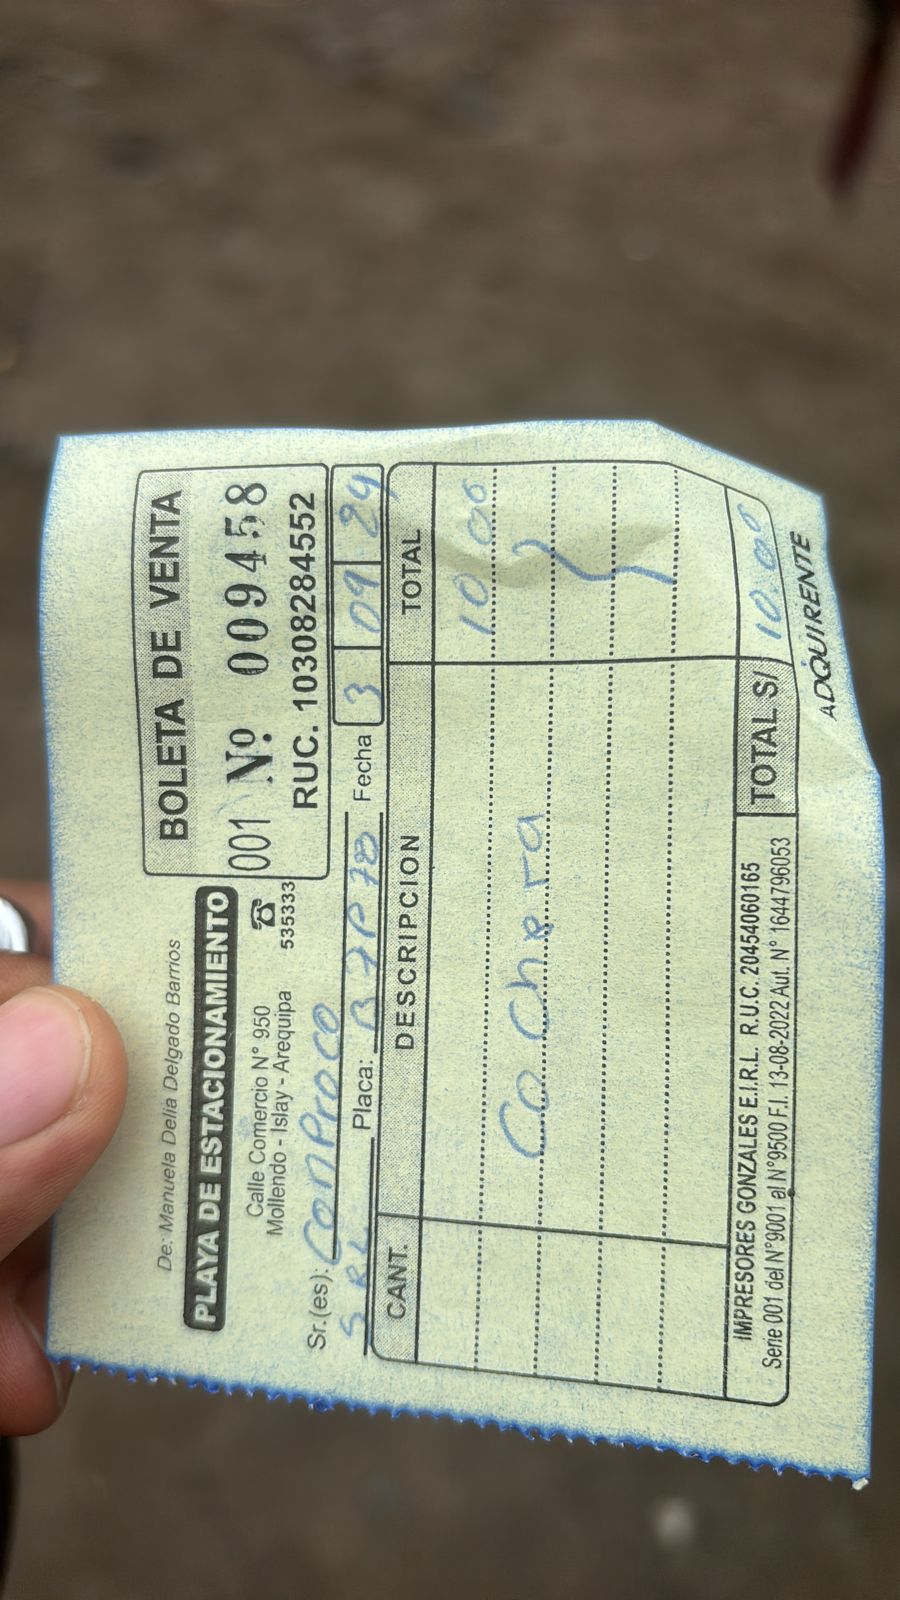 De: Manuela Delia Delgado Barrios
PLAYA DE ESTACIONAMIENTO
Calle Comercio N° 950
Mollendo - Islay - Arequipa
☎ 535333
BOLETA DE VENTA
001 Nº 009458
RUC. 10308284552
Sr.(es): ConProco
S R L Placa: B7P 78 Fecha 3 09 24
CANT. DESCRIPCION TOTAL
10.00
Cochera
IMPRESORES GONZALES E.I.R.L. R.U.C. 20454060165
Serie 001 del N°9001 al N°9500 F.I. 13-08-2022 Aut. N° 1644796053
TOTAL S/ 10.00
ADQUIRENTE